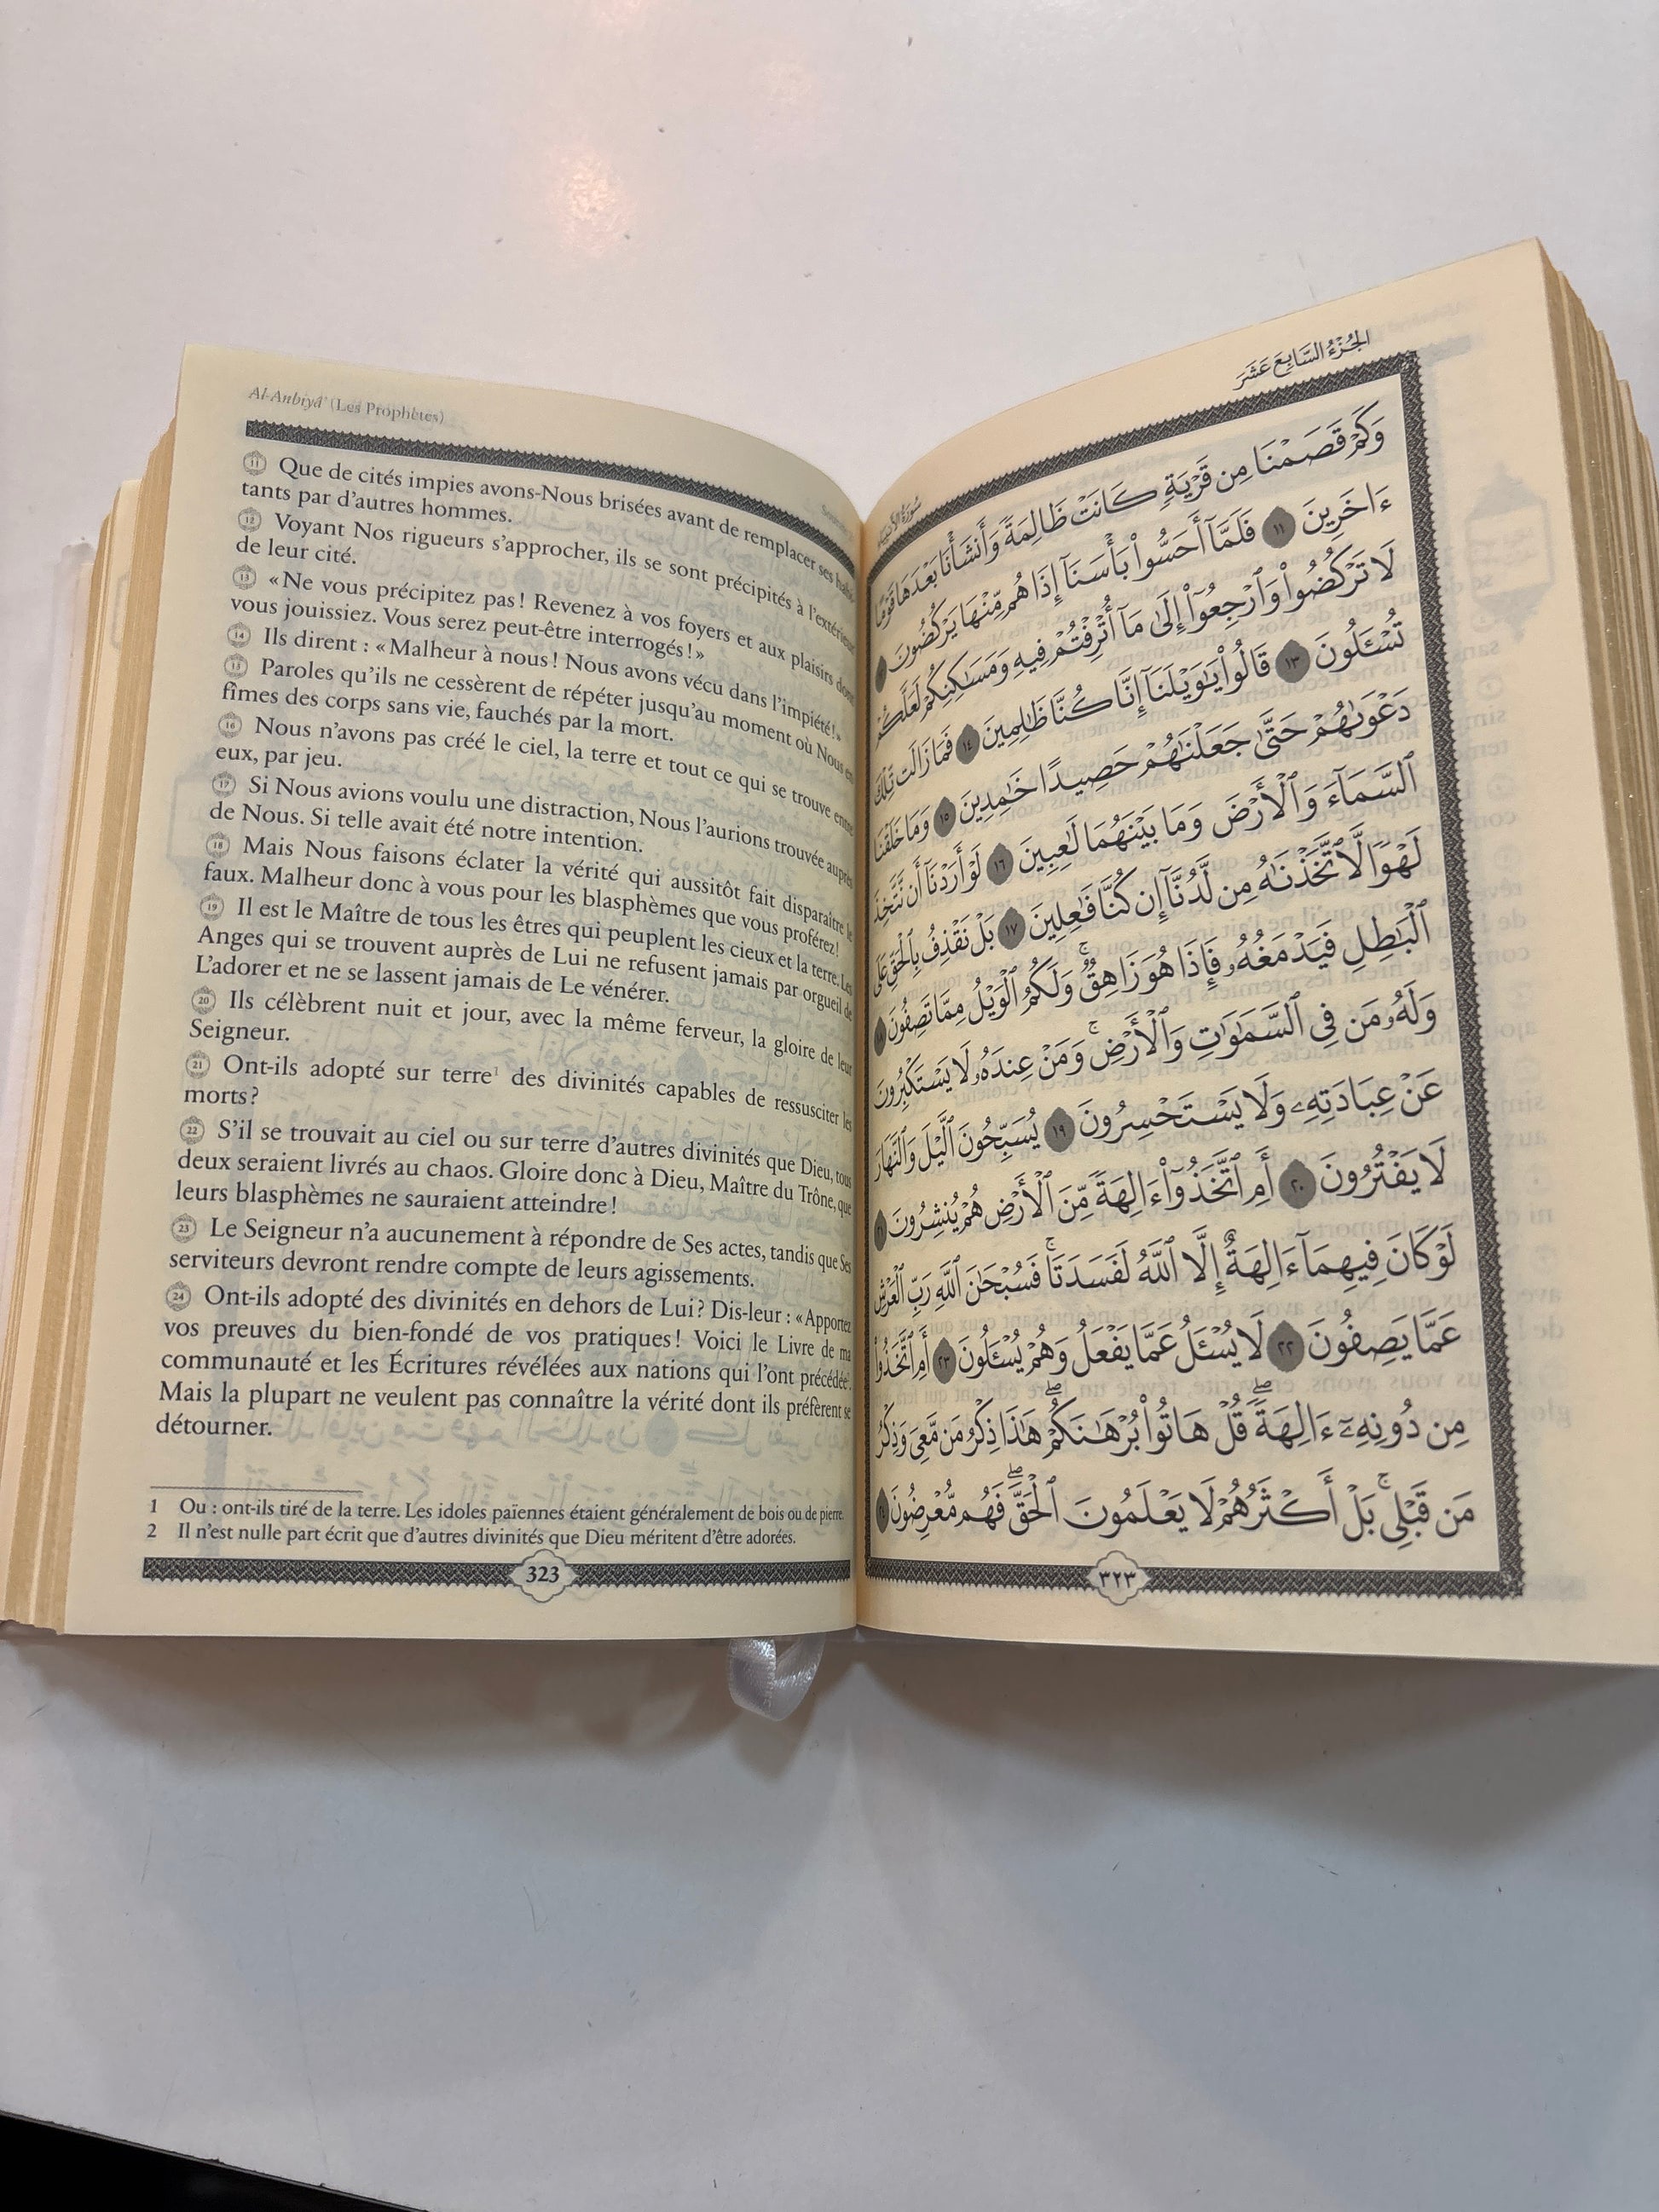 Al-Anbiyâ' (Les Prophètes)
11 Que de cités impies avons-Nous brisées avant de remplacer ses habi-
tants par d'autres hommes.
12 Voyant Nos rigueurs s'approcher, ils se sont précipités à l'extérieur
de leur cité.
13 «Ne vous précipitez pas! Revenez à vos foyers et aux plaisirs dont
vous jouissiez. Vous serez peut-être interrogés!»
14 Ils dirent : «Malheur à nous! Nous avons vécu dans l'impiété!»
15 Paroles qu'ils ne cessèrent de répéter jusqu'au moment où Nous en
fîmes des corps sans vie, fauchés par la mort.
16 Nous n'avons pas créé le ciel, la terre et tout ce qui se trouve entre
eux, par jeu.
17 Si Nous avions voulu une distraction, Nous l'aurions trouvée auprès
de Nous. Si telle avait été notre intention.
18 Mais Nous faisons éclater la vérité qui aussitôt fait disparaître le
faux. Malheur donc à vous pour les blasphèmes que vous proférez!
19 Il est le Maître de tous les êtres qui peuplent les cieux et la terre. Les
Anges qui se trouvent auprès de Lui ne refusent jamais par orgueil de
L'adorer et ne se lassent jamais de Le vénérer.
20 Ils célèbrent nuit et jour, avec la même ferveur, la gloire de leur
Seigneur.
21 Ont-ils adopté sur terre¹ des divinités capables de ressusciter les
morts?
22 S'il se trouvait au ciel ou sur terre d'autres divinités que Dieu, tous
deux seraient livrés au chaos. Gloire donc à Dieu, Maître du Trône, que
leurs blasphèmes ne sauraient atteindre!
23 Le Seigneur n'a aucunement à répondre de Ses actes, tandis que Ses
serviteurs devront rendre compte de leurs agissements.
24 Ont-ils adopté des divinités en dehors de Lui? Dis-leur : «Apportez
vos preuves du bien-fondé de vos pratiques! Voici le Livre de ma
communauté et les Écritures révélées aux nations qui l'ont précédée².
Mais la plupart ne veulent pas connaître la vérité dont ils préfèrent se
détourner.
1 Ou : ont-ils tiré de la terre. Les idoles païennes étaient généralement de bois ou de pierre.
2 Il n'est nulle part écrit que d'autres divinités que Dieu méritent d'être adorées.
323
الجُزْءُ السَّابِعَ عَشَرَ
سُورَةُ الأَنبِيَاء
وَكَمْ قَصَمْنَا مِن قَرْيَةٍ كَانَتْ ظَالِمَةً وَأَنشَأْنَا بَعْدَهَا قَوْمًا
ءَاخَرِينَ ١١ فَلَمَّآ أَحَسُّوا۟ بَأْسَنَآ إِذَا هُم مِّنْهَا يَرْكُضُونَ
لَا تَرْكُضُوا۟ وَٱرْجِعُوٓا۟ إِلَىٰ مَآ أُتْرِفْتُمْ فِيهِ وَمَسَـٰكِنِكُمْ لَعَلَّكُمْ
تُسْـَٔلُونَ ١٣ قَالُوا۟ يَـٰوَيْلَنَآ إِنَّا كُنَّا ظَـٰلِمِينَ ١٤ فَمَا زَالَت تِّلْكَ
دَعْوَىٰهُمْ حَتَّىٰ جَعَلْنَـٰهُمْ حَصِيدًا خَـٰمِدِينَ ١٥ وَمَا خَلَقْنَا
ٱلسَّمَآءَ وَٱلْأَرْضَ وَمَا بَيْنَهُمَا لَـٰعِبِينَ ١٦ لَوْ أَرَدْنَآ أَن نَّتَّخِذَ
لَهْوًا لَّٱتَّخَذْنَـٰهُ مِن لَّدُنَّآ إِن كُنَّا فَـٰعِلِينَ ١٧ بَلْ نَقْذِفُ بِٱلْحَقِّ عَلَى
ٱلْبَـٰطِلِ فَيَدْمَغُهُۥ فَإِذَا هُوَ زَاهِقٌ ۚ وَلَكُمُ ٱلْوَيْلُ مِمَّا تَصِفُونَ ١٨
وَلَهُۥ مَن فِى ٱلسَّمَـٰوَٰتِ وَٱلْأَرْضِ ۚ وَمَنْ عِندَهُۥ لَا يَسْتَكْبِرُونَ
عَنْ عِبَادَتِهِۦ وَلَا يَسْتَحْسِرُونَ ١٩ يُسَبِّحُونَ ٱلَّيْلَ وَٱلنَّهَارَ
لَا يَفْتُرُونَ ٢٠ أَمِ ٱتَّخَذُوٓا۟ ءَالِهَةً مِّنَ ٱلْأَرْضِ هُمْ يُنشِرُونَ ٢١
لَوْ كَانَ فِيهِمَآ ءَالِهَةٌ إِلَّا ٱللَّهُ لَفَسَدَتَا ۚ فَسُبْحَـٰنَ ٱللَّهِ رَبِّ ٱلْعَرْشِ
عَمَّا يَصِفُونَ ٢٢ لَا يُسْـَٔلُ عَمَّا يَفْعَلُ وَهُمْ يُسْـَٔلُونَ ٢٣ أَمِ ٱتَّخَذُوا۟
مِن دُونِهِۦٓ ءَالِهَةً ۖ قُلْ هَاتُوا۟ بُرْهَـٰنَكُمْ ۖ هَـٰذَا ذِكْرُ مَن مَّعِىَ وَذِكْرُ
مَن قَبْلِى ۗ بَلْ أَكْثَرُهُمْ لَا يَعْلَمُونَ ٱلْحَقَّ ۖ فَهُم مُّعْرِضُونَ
٣٢٣